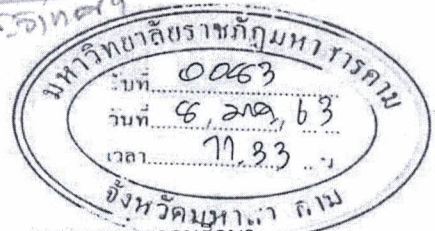 มหาวิทยาลัยราชภัฏมหาสารคาม
รับที่ 0063
วันที่ 8, มค, 63
เวลา 11.33 น
จังหวัดมหาสารคาม